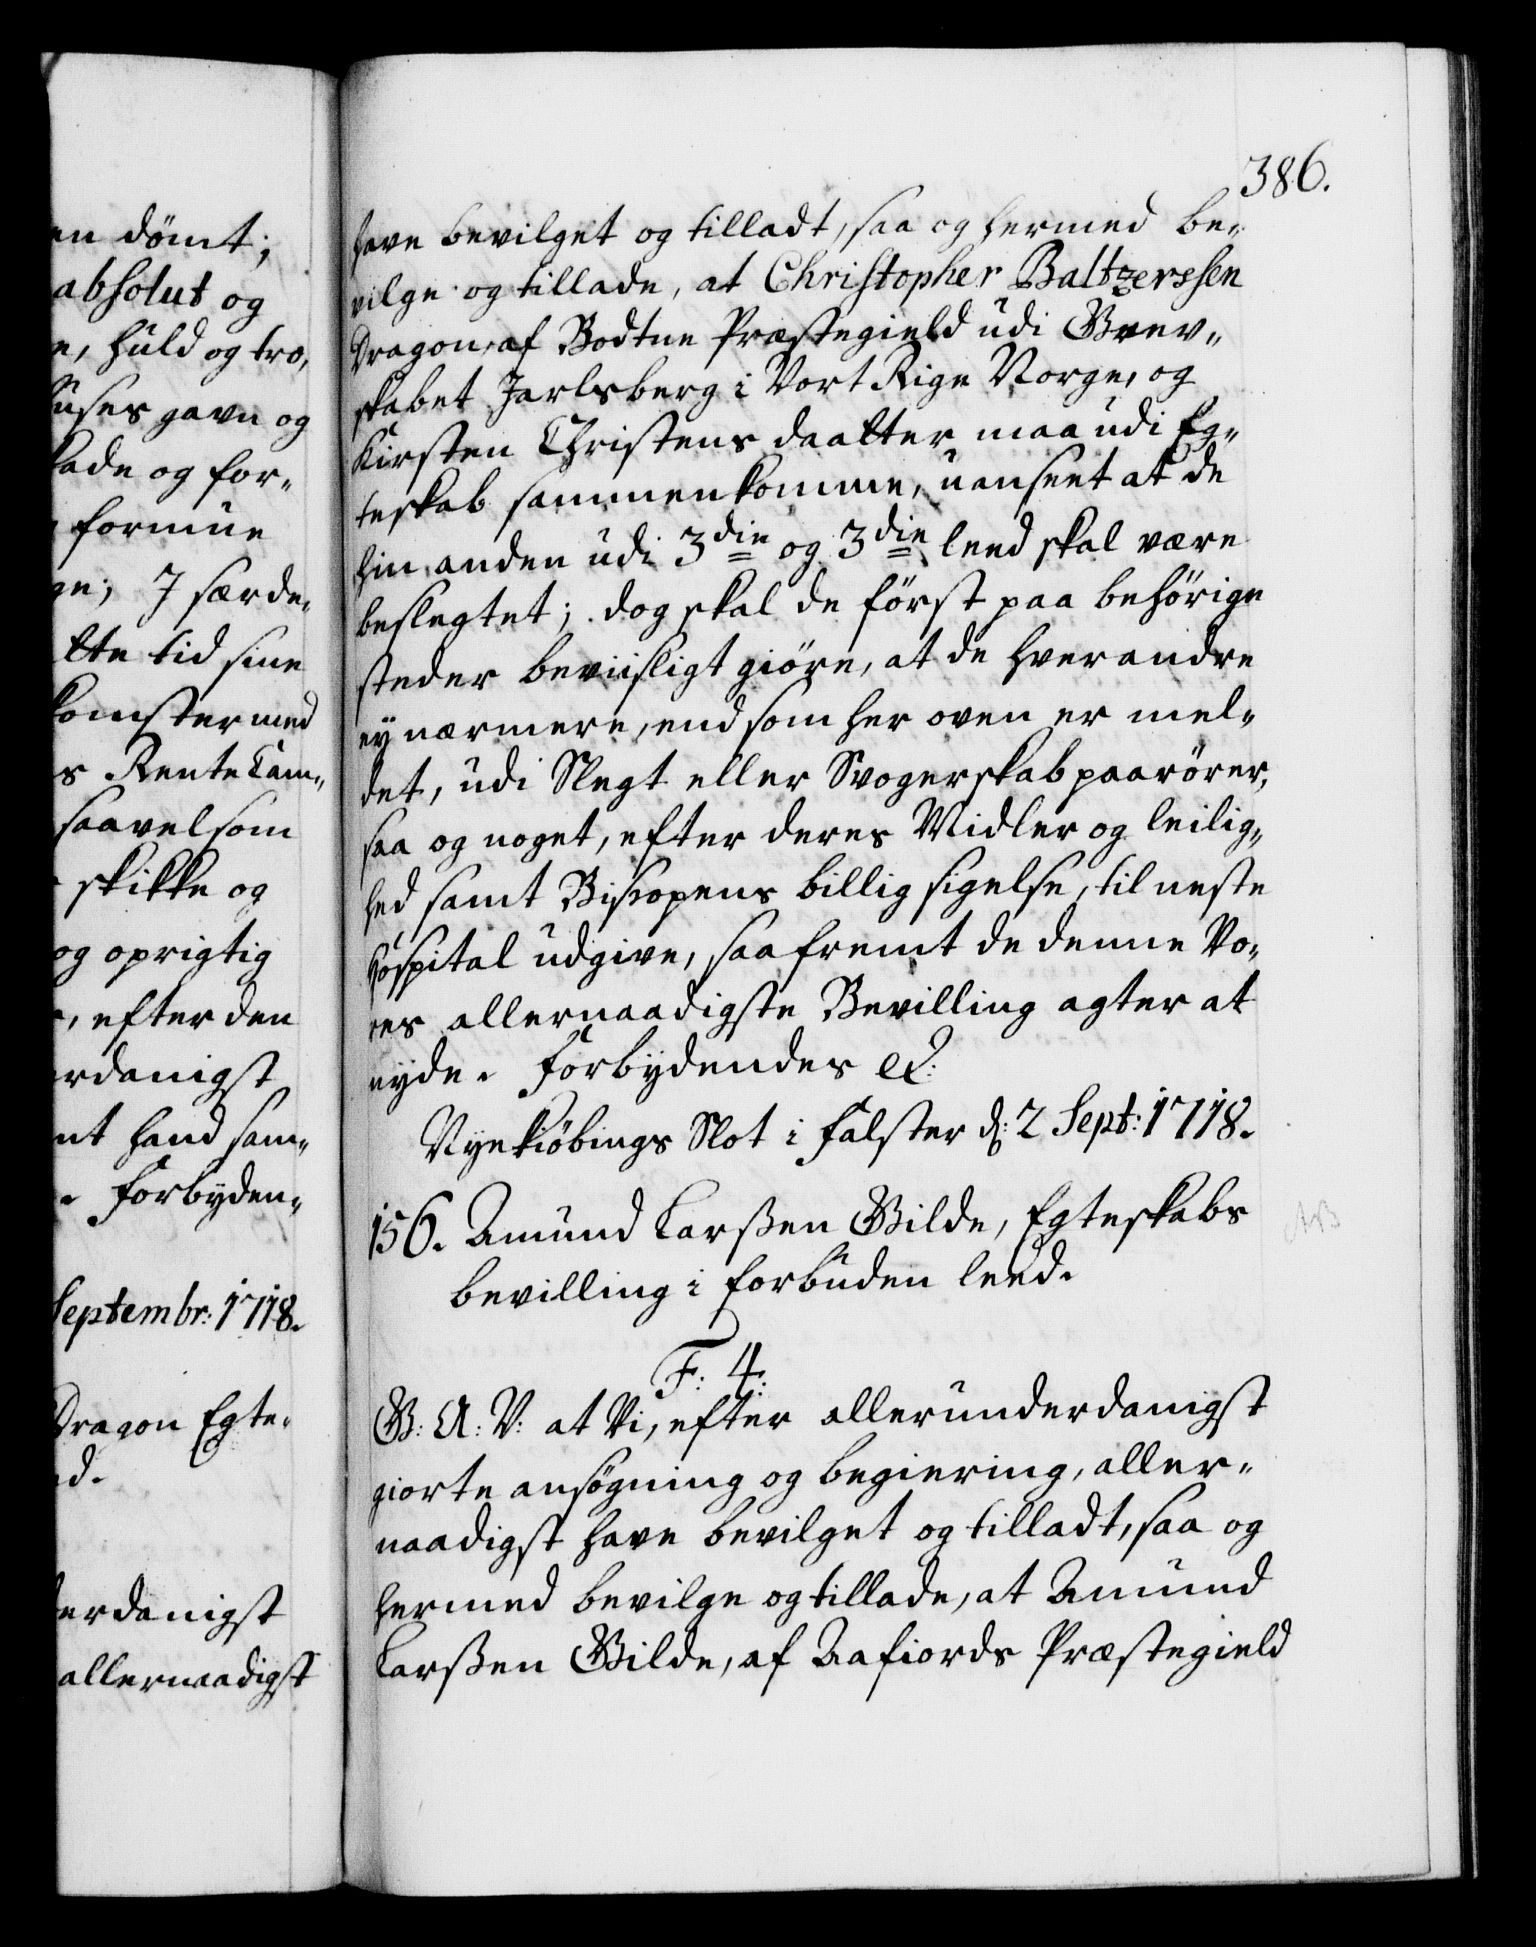 en dömt;
absolut og
e, huld og tro,
uses gavn og
kade og for-
formue
ge; I særde-
lte tid sine
komster med
s Rente Cam-
saavel som
skikke og
og oprigtig
, efter den
erdanigst
nt hand sam-
. Forbyden-
Septembr: 1718.
Dragon Egte-
ed.
derdanigst
allernaadigst
386.
have bevilget og tilladt, saa og hermed be-
vilge og tillade, at Christopher Baltzerssen
Dragon, af Bodtne Præstegield udi Grev-
skabet Jarlsberg i Vort Rige Norge, og
Kirsten Christens daatter maa udi Eg-
teskab sammenkomme, uanseet at de
hin anden udi 3die og 3die leed skal være
beslegtet; dog skal de först paa behörige
steder beviisligt giöre, at de hverandre
ey nærmere, end som her oven er mel-
det, udi Slegt eller Svogerskab paarörer,
saa og noget, efter deres Midler og leilig-
hed samt Bispopens billig sigelse, til neste
Hospital udgive, saafremt de denne Vo-
res allernaadigste Bevilling agter at
nyde. Forbydendes etc.
Nyekiöbings Slot i Falster d: 2 Sept: 1718.
156. Amund Larßen Gilde, Egteskabs
bevilling i forbuden leed.
F: 4:
G: A: V: at Vi, efter allerunderdanigst
giorte ansögning og begiering, aller-
naadigst have bevilget og tilladt, saa og
hermed bevilge og tillade, at Amund
Larßen Gilde, af Aafiords Præstegield